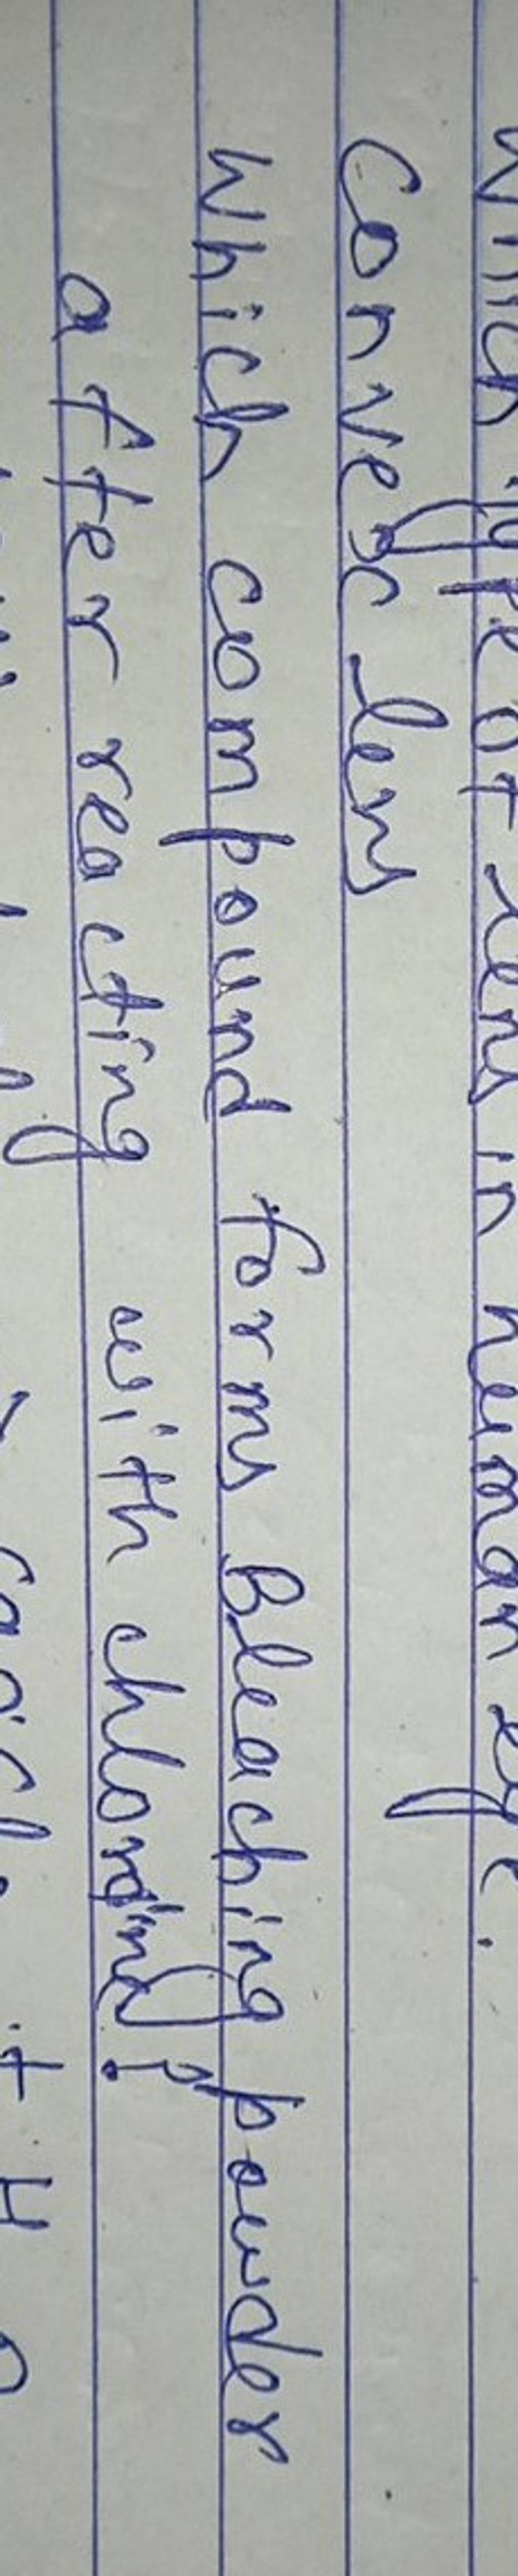 Which type of lens in human eye.
Convex lens
Which compound forms Bleaching powder
after reacting with chlorine?